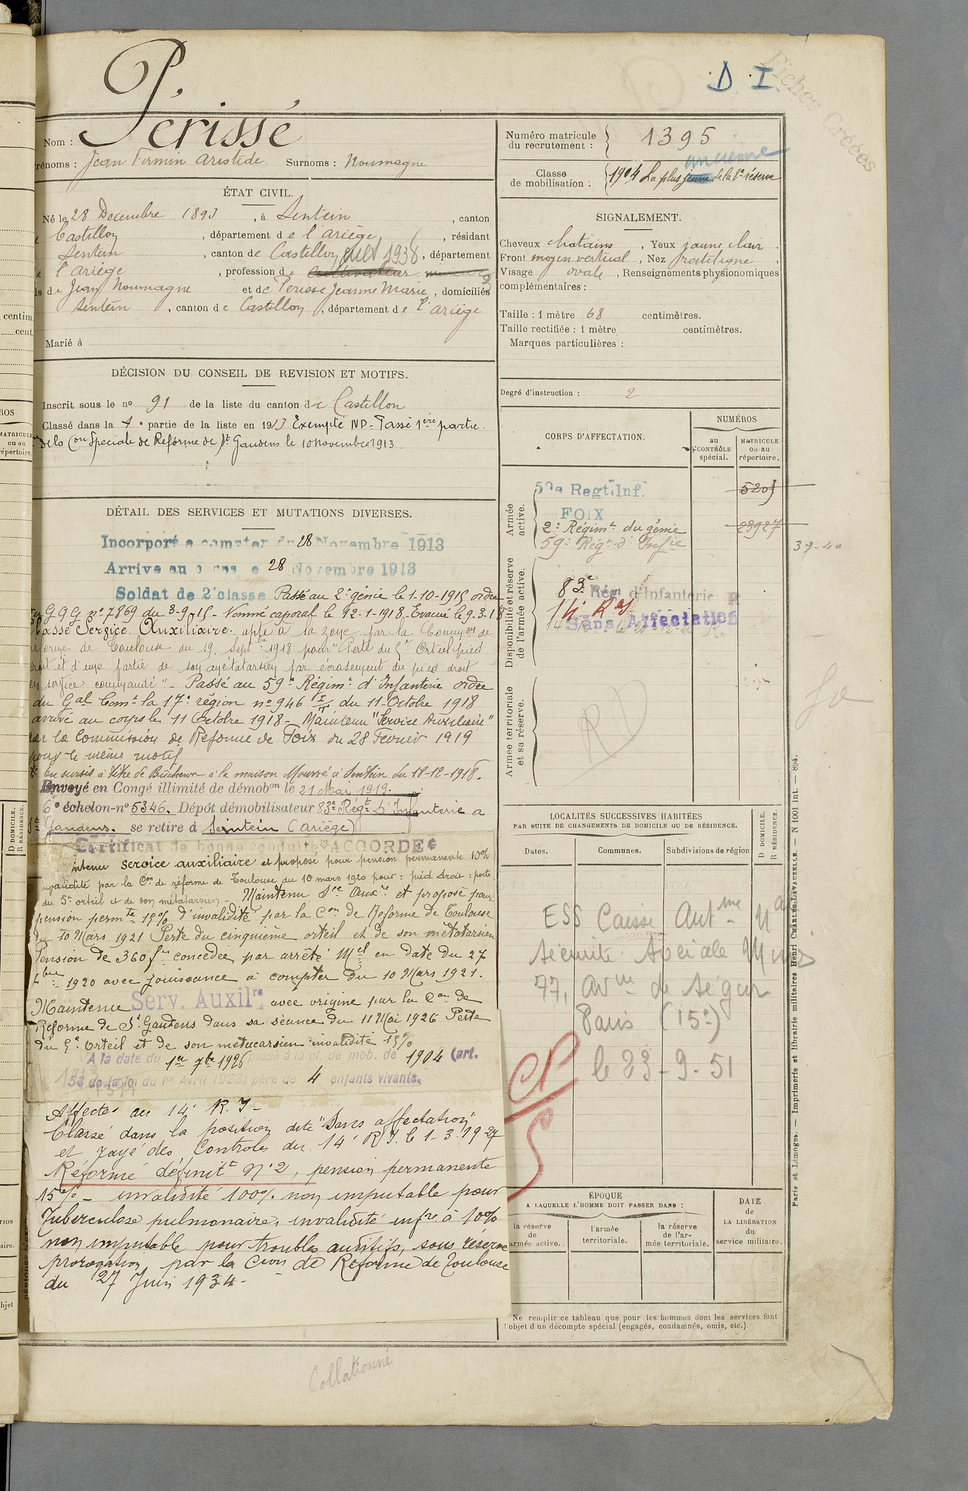 D. I.
Fiches Créées
Périssé
Nom :
Prénoms : Jean Firmin Aristide Surnoms : Noumagne
Numéro matricule du recrutement : 1395
ancienne
Classe de mobilisation : 1904 La plus jeune de la 2e réserve
ÉTAT CIVIL.
Né le 28 Décembre 1893, à Sentein, canton
Castillon, département de l'Ariège, résidant
Sentein, canton de Castillon, département
1938
l'Ariège, profession de cultivateur
de Jean Noumagne et de Périssé Jeanne Marie, domiciliés
Sentein, canton de Castillon, département de l'Ariège
Marié à
SIGNALEMENT.
Cheveux chatains, Yeux jaune clair
Front moyen vertical, Nez rectiligne
Visage ovale, Renseignements physionomiques
complémentaires :
Taille : 1 mètre 68 centimètres.
Taille rectifiée : 1 mètre centimètres.
Marques particulières :
Degré d'instruction : 2
DÉCISION DU CONSEIL DE REVISION ET MOTIFS.
Inscrit sous le no 91 de la liste du canton de Castillon
Classé dans la 4e partie de la liste en 1913 Exempté NP - Passé 1ère partie
de la Con Spéciale de Réforme de St Gaudens le 10 novembre 1913
DÉTAIL DES SERVICES ET MUTATIONS DIVERSES.
Incorporé à compter du 28 Novembre 1913
Arrivé au corps le 28 Novembre 1913
Soldat de 2e classe Passé au 2e génie le 1.10.1915 ordre
G.Q.G. no 7869 du 3-9-15 - Nommé caporal le 92-1-1918. Evacué le 9.3.18
Classé Service Auxiliaire, apte à la zone par la Commission de
réforme de Toulouse du 19 Sept 1918 pour "Perte du 5e Orteil pied
droit et d'une partie de son métatarsien par écrasement du pied droit
en service commandé" - Passé au 59e Régimt d'Infanterie ordre
du Gal Comt la 17e région no 946 I/T du 11 Octobre 1918
arrivé au corps le 11 Octobre 1918 - Maintenu "Service Auxiliaire"
par la Commission de Réforme de Foix du 28 Février 1919
pour le même motif
En sursis à titre de Bûcheron à la maison à Sentein du 18-12-1918.
Envoyé en Congé illimité de démobon le 21 Mai 1919.
6e échelon-no 5346. Dépôt démobilisateur 83e Régt d'Infanterie à
St Gaudens. se retire à Seintein (Ariège)
Certificat de bonne conduite : ACCORDÉ
Maintenu service auxiliaire et proposé pour pension permanente 10%
invalidité par la Con de réforme de Toulouse du 10 mars 1920 pour : pied droit : perte
du 5e orteil et de son métatarsien. Maintenu Sce Auxre et proposé pour
pension permte 15% d'invalidité par la Con de Réforme de Toulouse
du 10 Mars 1921 Perte du cinquième orteil et de son métatarsien
Pension de 360 f concédée par arrêté Mel en date du 27
bre 1920 avec jouissance à compter du 10 Mars 1921.
Maintenu Serv. Auxilre avec origine par la Con de
Réforme de St Gaudens dans sa séance du 11 Mai 1926 Perte
du 5e orteil et de son métacarsien invalidité 15%
A la date du 1er 7bre 1926 passé à la cl. de mob. de 1904 (art.
58 de la loi du 1er Avril 1923) père de 4 enfants vivants.
Affecté au 14e R.I -
Classé dans la position dite "Sans affectation"
et rayé des Contrôles du 14e R.I. le 1-3-1927
Réformé définitt no 2, pension permanente
15% - invalidité 100% non imputable pour
Tuberculose pulmonaire, invalidité infre à 10%
non imputable pour troubles auditifs, sous réserve
prorogation par la Cion de Réforme de Toulouse
du 27 Juin 1934.
CORPS D'AFFECTATION.
NUMÉROS
au CONTRÔLE spécial.
MATRICULE ou au répertoire.
Armée active.
59e Regt. Inf.
FOIX
5205
2e Régimt du génie
23927
59e Régt d'Infie
39-40
Disponibilité et réserve de l'armée active.
83e Rég. d'Infanterie
14e R.I.
Sans Affectation
Armée territoriale et sa réserve.
RD
LOCALITÉS SUCCESSIVES HABITÉES
PAR SUITE DE CHANGEMENTS DE DOMICILE OU DE RÉSIDENCE.
Dates. Communes. Subdivisions de région
D DOMICILE. R RÉSIDENCE.
ESS Caisse Autme Nale
Sécurité Sociale Mines
77, Avue de Ségur
Paris (15e)
le 23-9-51
CP
S
ÉPOQUE
A LAQUELLE L'HOMME DOIT PASSER DANS :
DATE de la LIBÉRATION du service militaire.
la réserve de l'armée active.
l'armée territoriale.
la réserve de l'armée territoriale.
Ne remplir ce tableau que pour les hommes dont les services font
l'objet d'un décompte spécial (engagés, condamnés, omis, etc.)
Paris et Limoges. — Imprimerie et librairie militaires Henri CHARLES-LAVAUZELLE. — N 1001 int. — 894.
Collationné